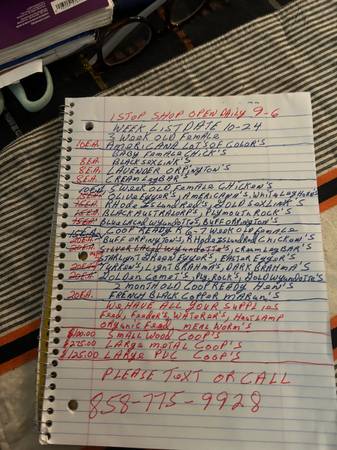 1 STOP SHOP OPEN DAILY 9-6
WEEK LIST DATE 10-24
3 WEEK OLD FEMALE
10EA. AMERICANA LOTS OF COLOR'S
BABY FEMALE CHICK'S
8EA. BLACK SOXLINK'S
8EA. LAVENDER ORPINGTON'S
8EA. CREAM LEGBAR
10EA. 5 WEEK OLD FEMALE CHICKEN'S
OLIVE EGGER'S, AMERICANA'S, WHITE LEGHORN'S
15EA. RHODE ISLAND RED'S, GOLD SOXLINK'S
15EA. BLACK AUSTRALORP'S, PLYMOUTH ROCK'S
15EA. BLUE LACED WYANDOTTE'S, BUFF ORPINGTON'S
COOP READY 6-7 WEEK OLD FEMALE
20EA. BUFF ORPINGTON'S, RHODE ISLAND RED CHICKEN'S
20EA. SILVER LACED WYANDOTTE'S, CREAM LEGBAR'S
20EA. STARLIGHT GREEN EGGER'S, EASTER EGGER'S
20EA. TURKEN'S, LIGHT BRAHMA'S, DARK BRAHMA'S
20EA. GOLDEN COMET'S, PLY. ROCK'S, GOLD WYANDOTTE'S
2 MONTH OLD COOP READY HEN'S
20EA. FRENCH BLACK COPPER MARAN'S
WE HAVE ALL YOUR SUPPLIES
FEED, FEEDER'S, WATERER'S, HEAT LAMP
ORGANIC FEED, MEAL WORM'S
$100.00 SMALL WOOD COOP'S
$275.00 LARGE METAL COOP'S
$125.00 LARGE PVC COOP'S
PLEASE TEXT OR CALL
858-775-9928